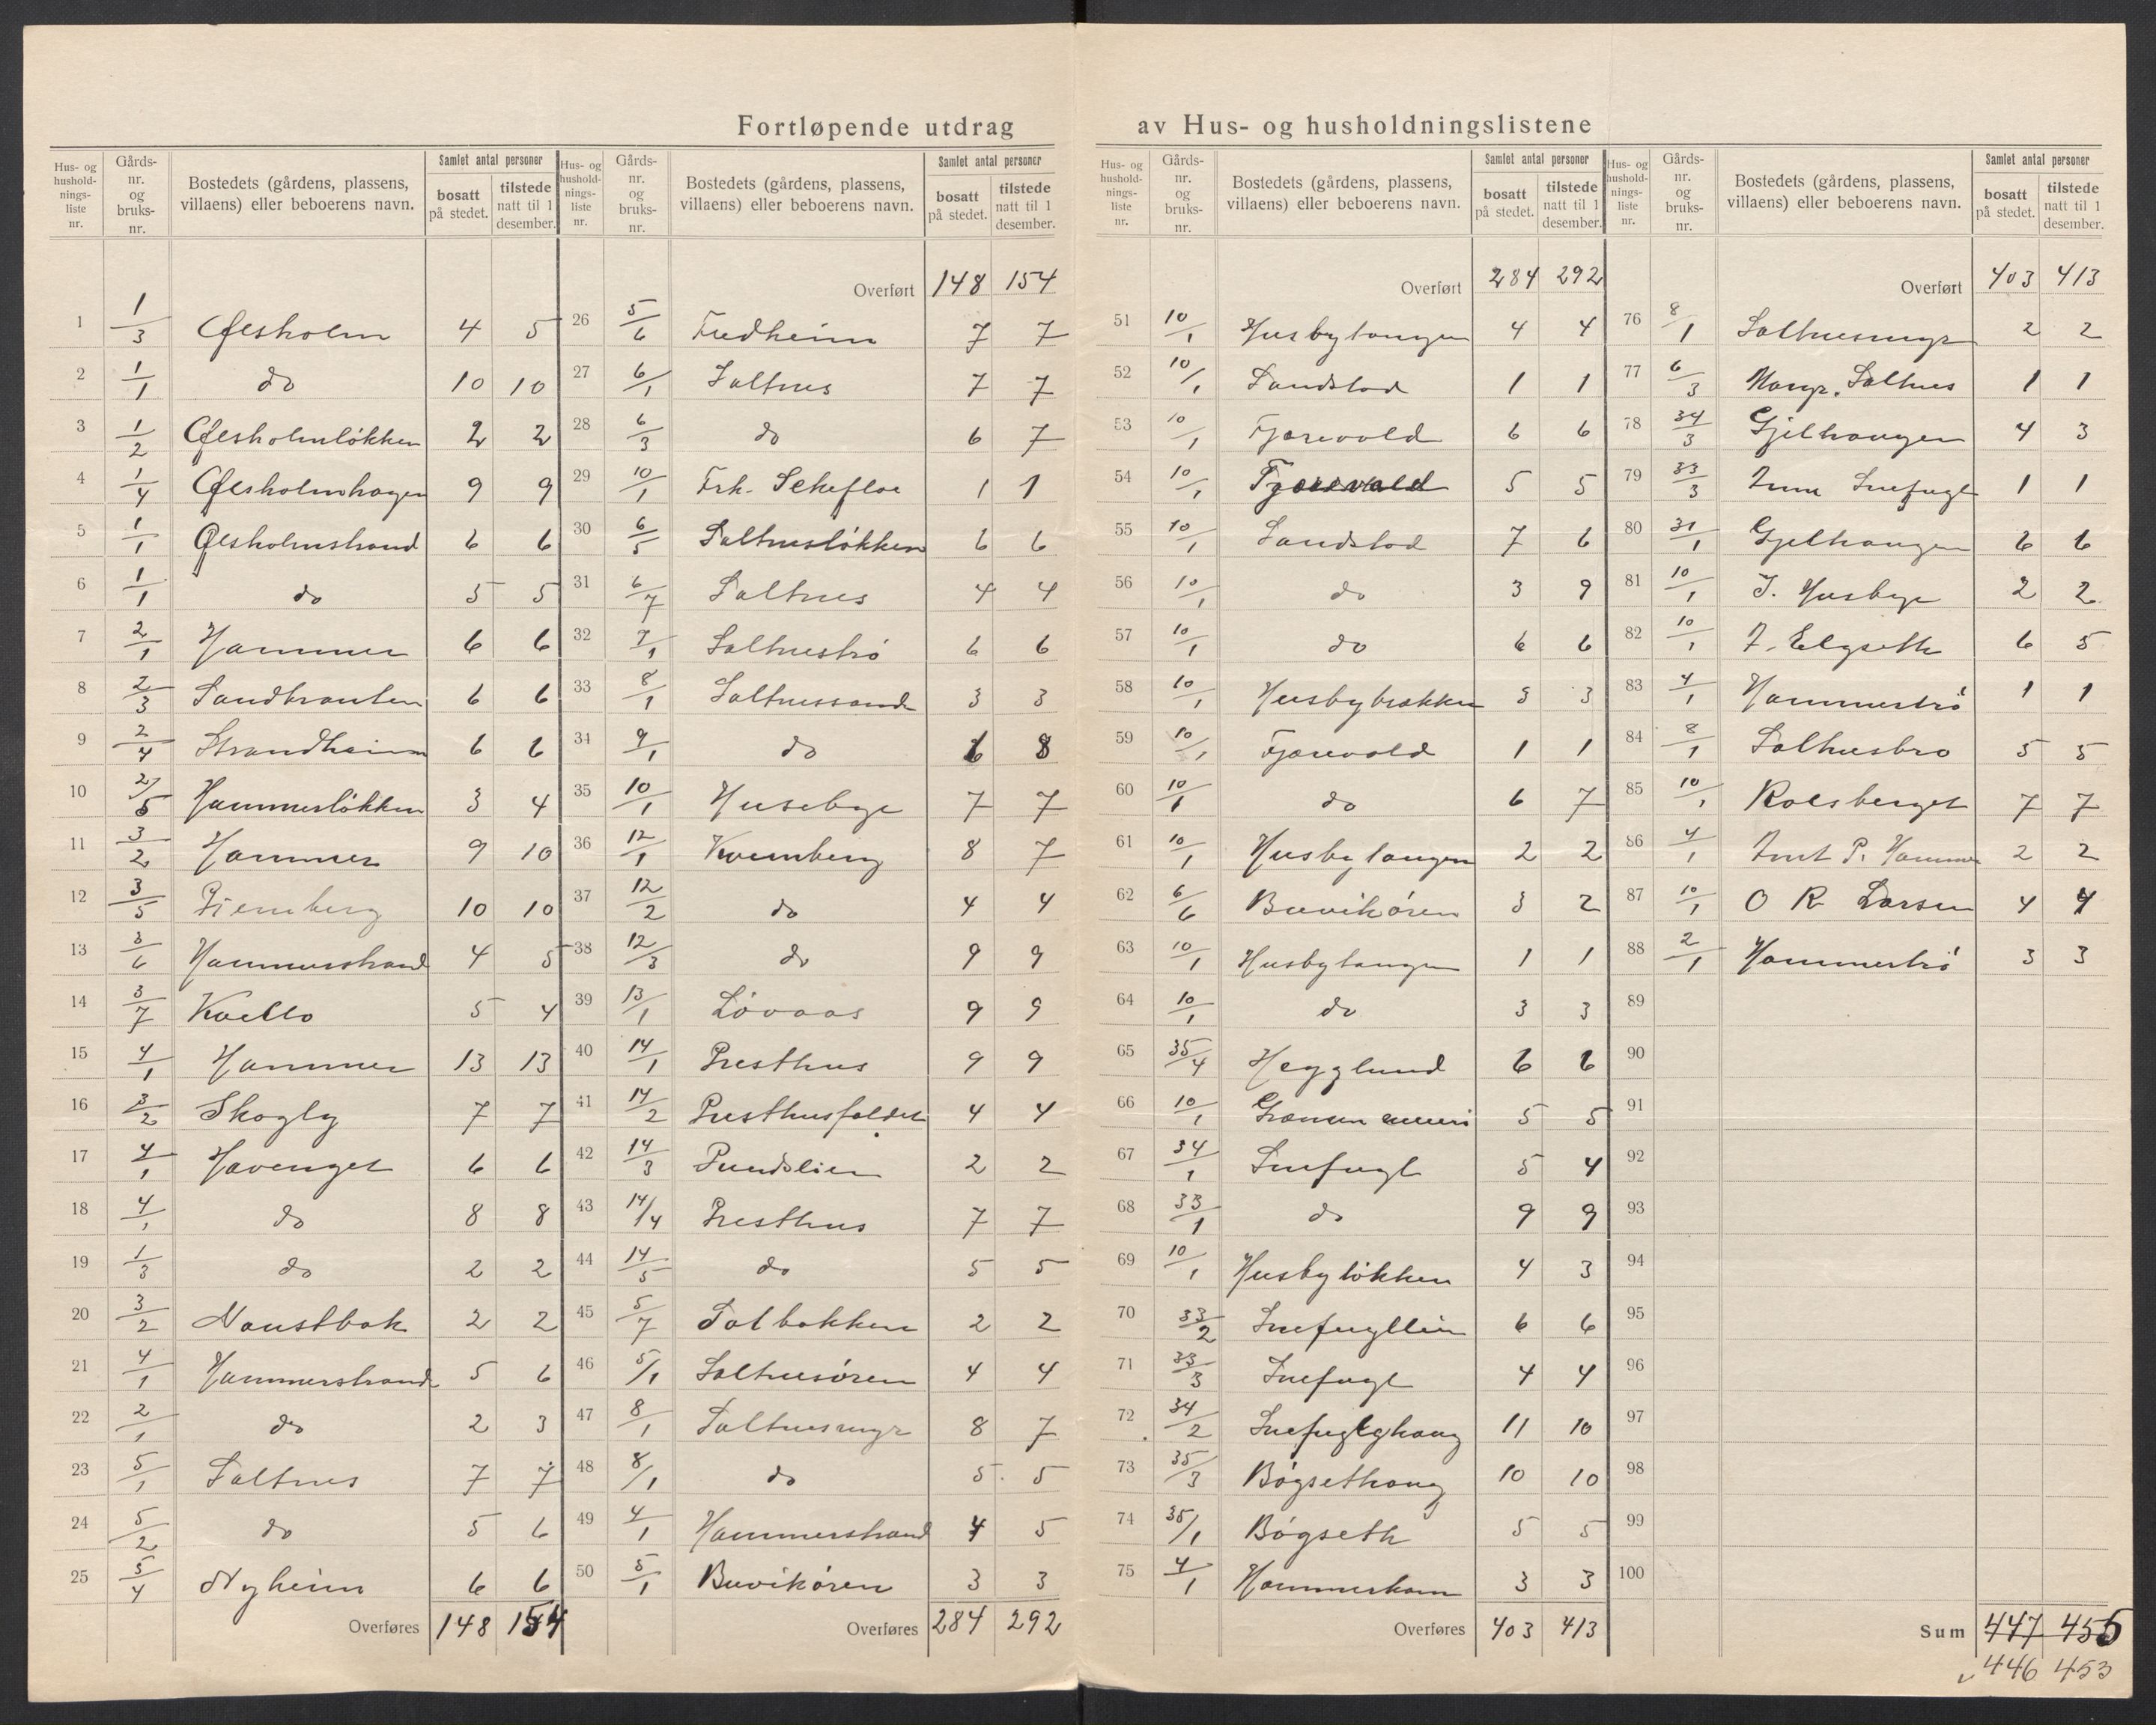 Fortløpende utdrag av Hus- og husholdningslistene
Hus- og husholdnings-liste nr. | Gårds-nr. og bruks-nr. | Bostedets (gårdens, plassens, villaens) eller beboerens navn. | Samlet antal personer bosatt på stedet. | tilstede natt til 1 desember.
1 1/3 Øesholm 4 5
2 1/1 do 10 10
3 1/2 Øesholmløkken 2 2
4 1/4 Øesholmhagen 9 9
5 1/1 Øesholmstrand 6 6
6 1/1 do 5 5
7 2/1 Hammer 6 6
8 2/3 Sandbrauten 6 6
9 2/4 Strandheim 6 6
10 2/5 Hammerløkken 3 4
11 3/2 Hammer 9 10
12 3/5 10 10
13 3/6 Hammerstrand 4 5
14 3/7 Kvello 5 4
15 4/1 Hammer 13 13
16 3/2 Skogly 7 7
17 4/1 Havenget 6 6
18 4/1 do 8 8
19 1/3 do 2 2
20 3/2 Naustbak 2 2
21 4/1 Hammerstrand 5 6
22 2/1 do 2 3
23 5/1 Saltnes 7 7
24 5/2 do 5 6
25 5/4 Nyheim 6 6
Overføres 148 154
Overført 148 154
26 5/6 Fredheim 7 7
27 6/1 Saltnes 7 7
28 6/3 do 6 7
29 10/1 Frk. Schefloe 1 1
30 6/5 Saltnesløkken 6 6
31 6/7 Saltnes 4 4
32 7/1 Saltnestrø 6 6
33 8/1 Saltnessand 3 3
34 9/1 do 6 8
35 10/1 Husebye 7 7
36 12/1 Kvernberg 8 7
37 12/2 do 4 4
38 12/3 do 9 9
39 13/1 Løvaas 9 9
40 14/1 Presthus 9 9
41 14/2 Presthusfaldet 4 4
42 14/3 Pundslien 2 2
43 14/4 Presthus 7 7
44 14/5 do 5 5
45 5/7 Solbakken 2 2
46 5/1 Saltnesøren 4 4
47 8/1 Saltnesmyr 8 7
48 8/1 do 5 5
49 4/1 Hammerstrand 4 5
50 5/1 Buvikøren 3 3
Overføres 284 292
Overført 284 292
51 10/1 Husbytangen 4 4
52 10/1 Sandstad 1 1
53 10/1 Fjærevold 6 6
54 10/1 Fjærevold 5 5
55 10/1 Sandstad 7 6
56 10/1 do 3 9
57 10/1 do 6 6
58 10/1 Husbybakken 3 3
59 10/1 Fjærevold 1 1
60 10/1 do 6 7
61 10/1 Husbytangen 2 2
62 6/6 Buvikøren 3 2
63 10/1 Husbytangen 1 1
64 10/1 do 3 3
65 35/4 Hegglund 6 6
66 10/1 5 5
67 34/1 Snefugl 5 4
68 33/1 do 9 9
69 10/1 Husbyløkken 4 3
70 33/2 Snefugllien 6 6
71 33/3 Snefugl 4 4
72 34/2 Snefuglhaug 11 10
73 35/3 Bøgsethaug 10 10
74 35/1 Bøgseth 5 5
75 4/1 Hammerkam 3 3
Overføres 403 413
Overført 403 413
76 8/1 Saltnesmyr 2 2
77 6/3 Margr. Saltnes 1 1
78 34/3 Gjelhaugen 4 3
79 33/3 Snefugl 1 1
80 31/1 Gjelhaugen 6 6
81 10/1 J. Husbye 2 2
82 10/1 J. Elgseth 6 5
83 4/1 Hammertrø 1 1
84 8/1 Saltnesbro 5 5
85 10/1 Rolsberget 7 7
86 4/1 Arnt P. Hammer 2 2
87 10/1 O R Larsen 4 4
88 2/1 Hammertrø 3 3
89
90
91
92
93
94
95
96
97
98
99
100
Sum 447 455
446 453